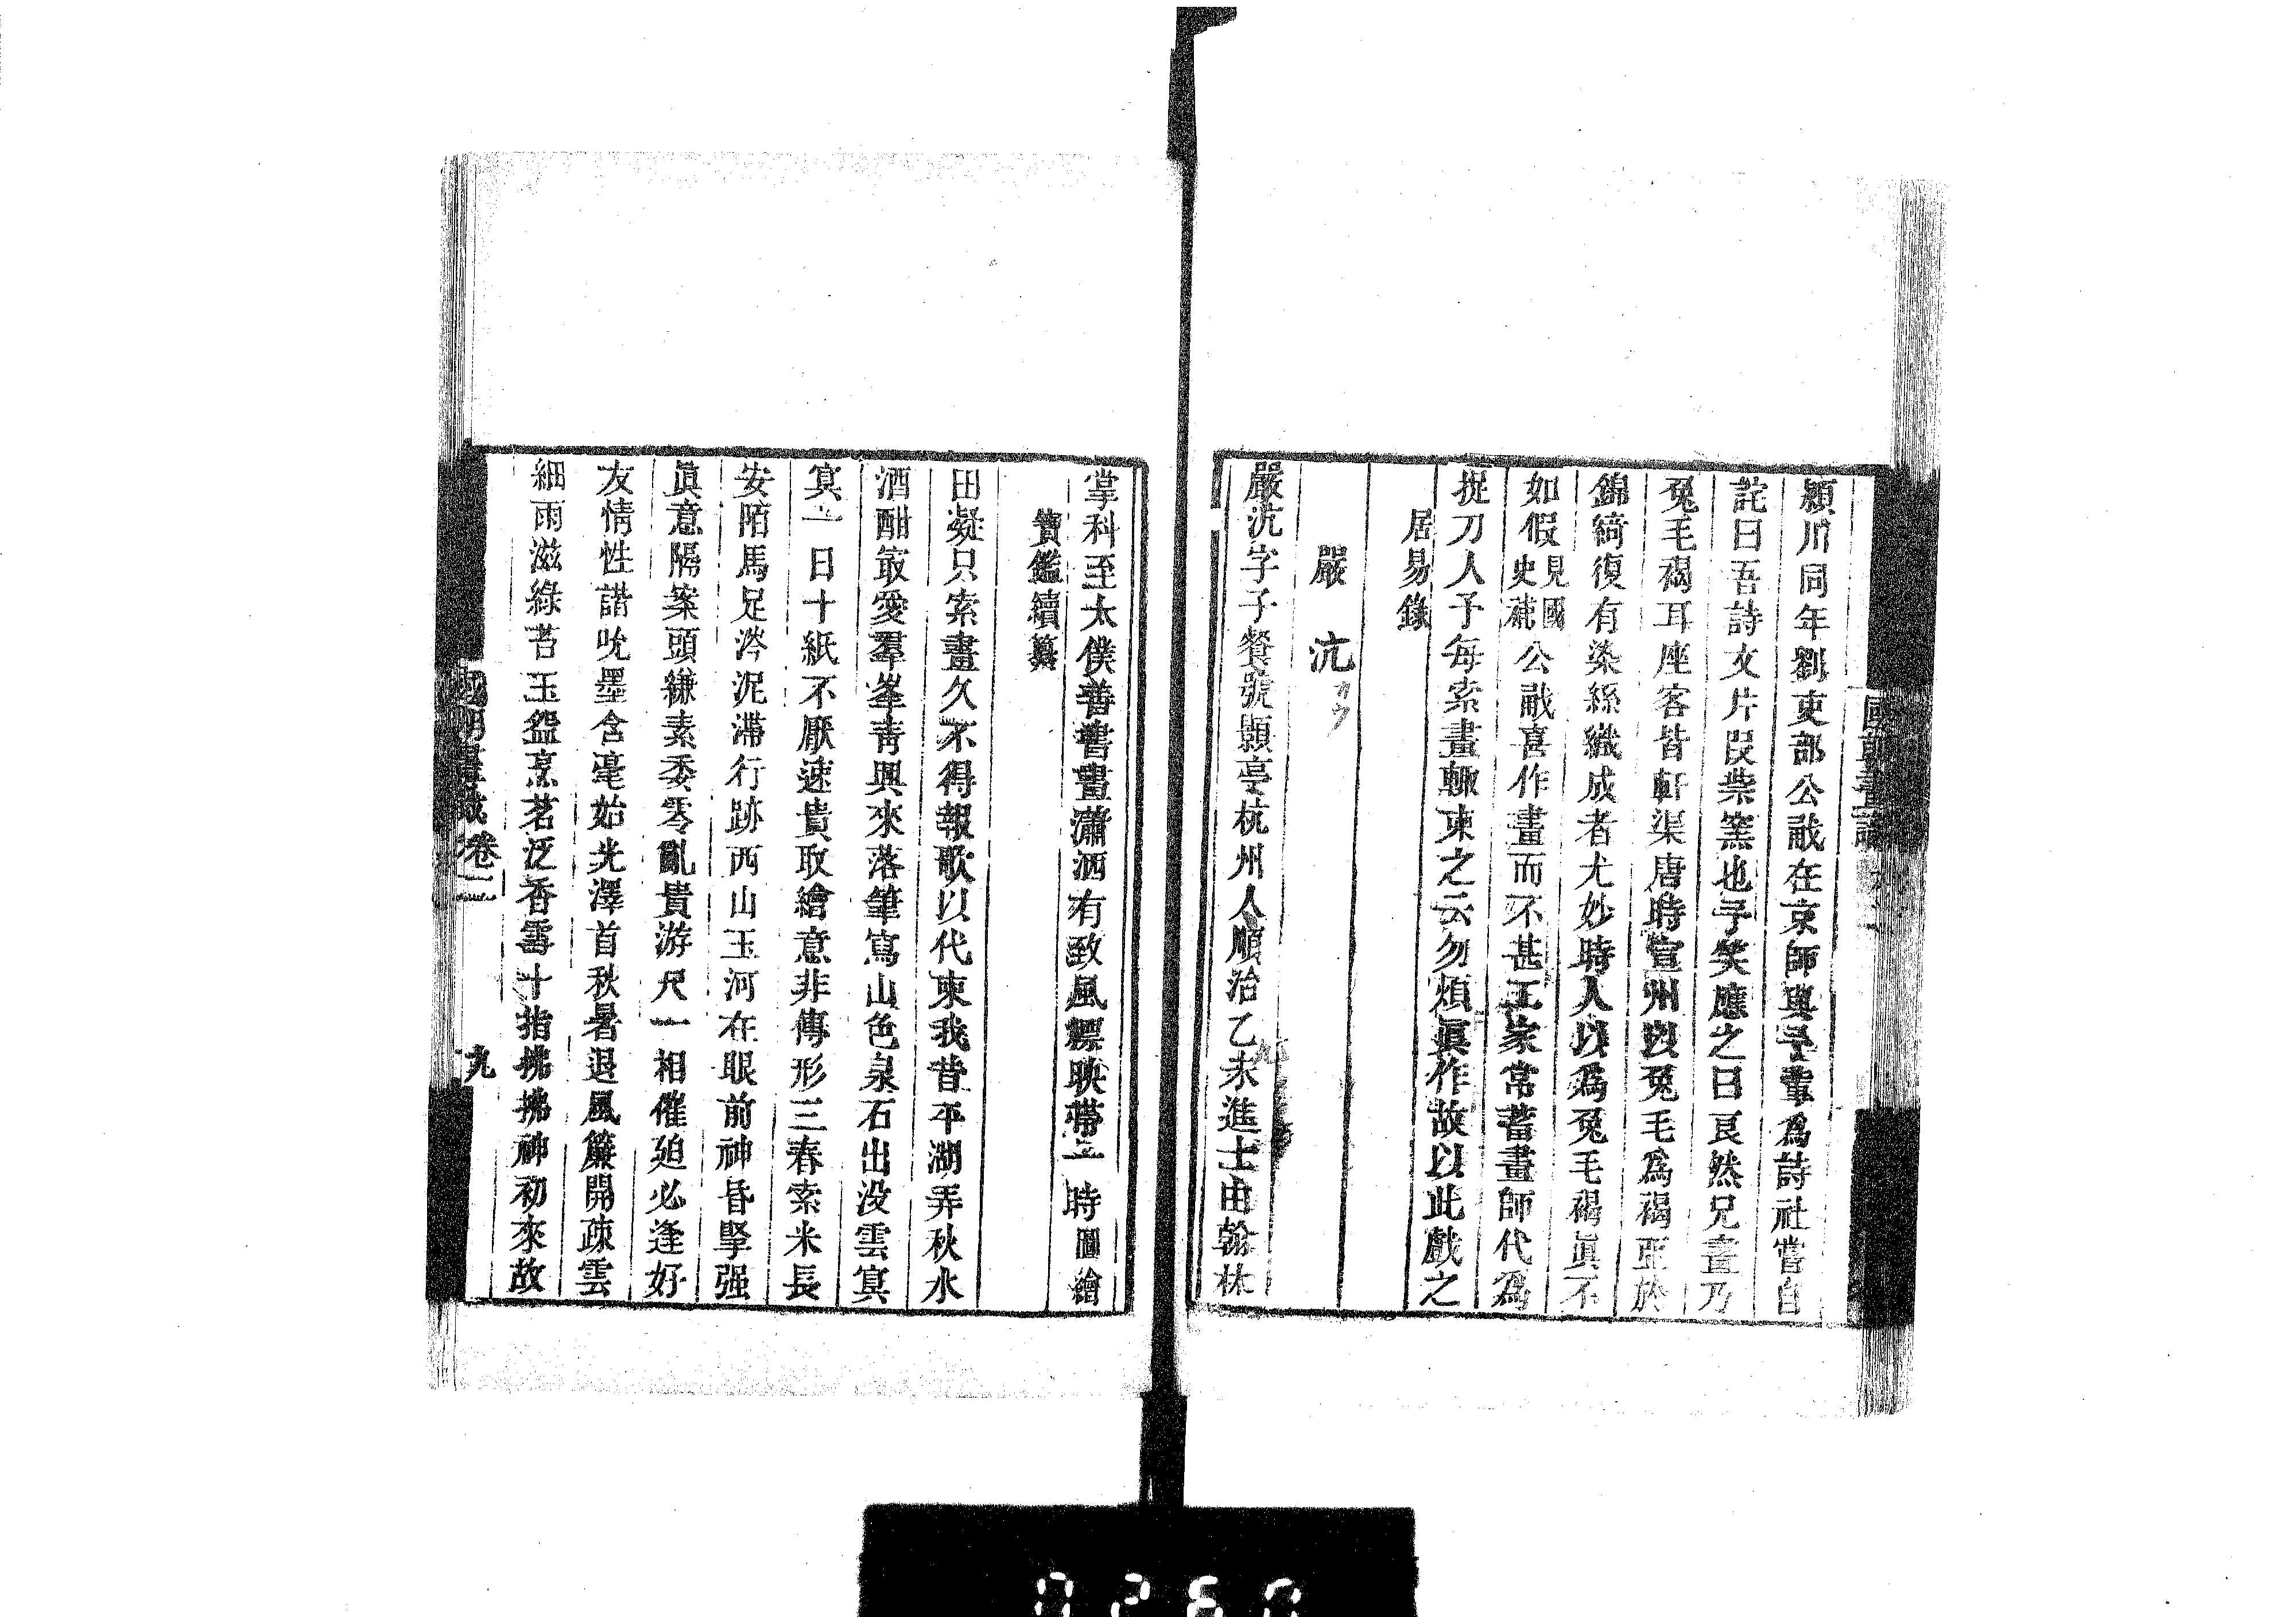 潁川同年劉吏部公㦷在京師與予輩爲詩社嘗自
詫曰吾詩文片段柴窯也予笑應之曰良然兄畫乃
兔毛褐耳座客皆軒渠唐時宣州以兔毛爲褐亞於
錦綺復有染絲織成者尤妙時人以爲兔毛褐眞不
如假見國史補公㦷喜作畫而不甚工家常蓄畫師代爲
捉刀人予每索畫輙柬之云勿煩眞作故以此戲之
居易錄
嚴沆
カウ
嚴沆字子餐號顥亭杭州人順治乙未進士由翰林
掌科至太僕善書畫瀟洒有致風標映帶一時圖繪
寶鑑續纂
田凝只索畫久不得報歌以代柬我昔平湖弄秋水
酒酣最愛羣峯靑興來落筆寫山色泉石出没雲冥
冥一日十紙不厭速貴取繪意非傳形三春索米長
安陌馬足涔泥滯行跡西山玉河在眼前神昏擥强
眞意隔案頭縑素委零亂貴游尺一相催廹必逢好
友情性諧吮墨含毫始光澤首秋暑退風簾開疎雲
細雨滋綠苔玉盌烹茗泛香雪十指拂拂神初來故
國朝畫識卷二
九
0260